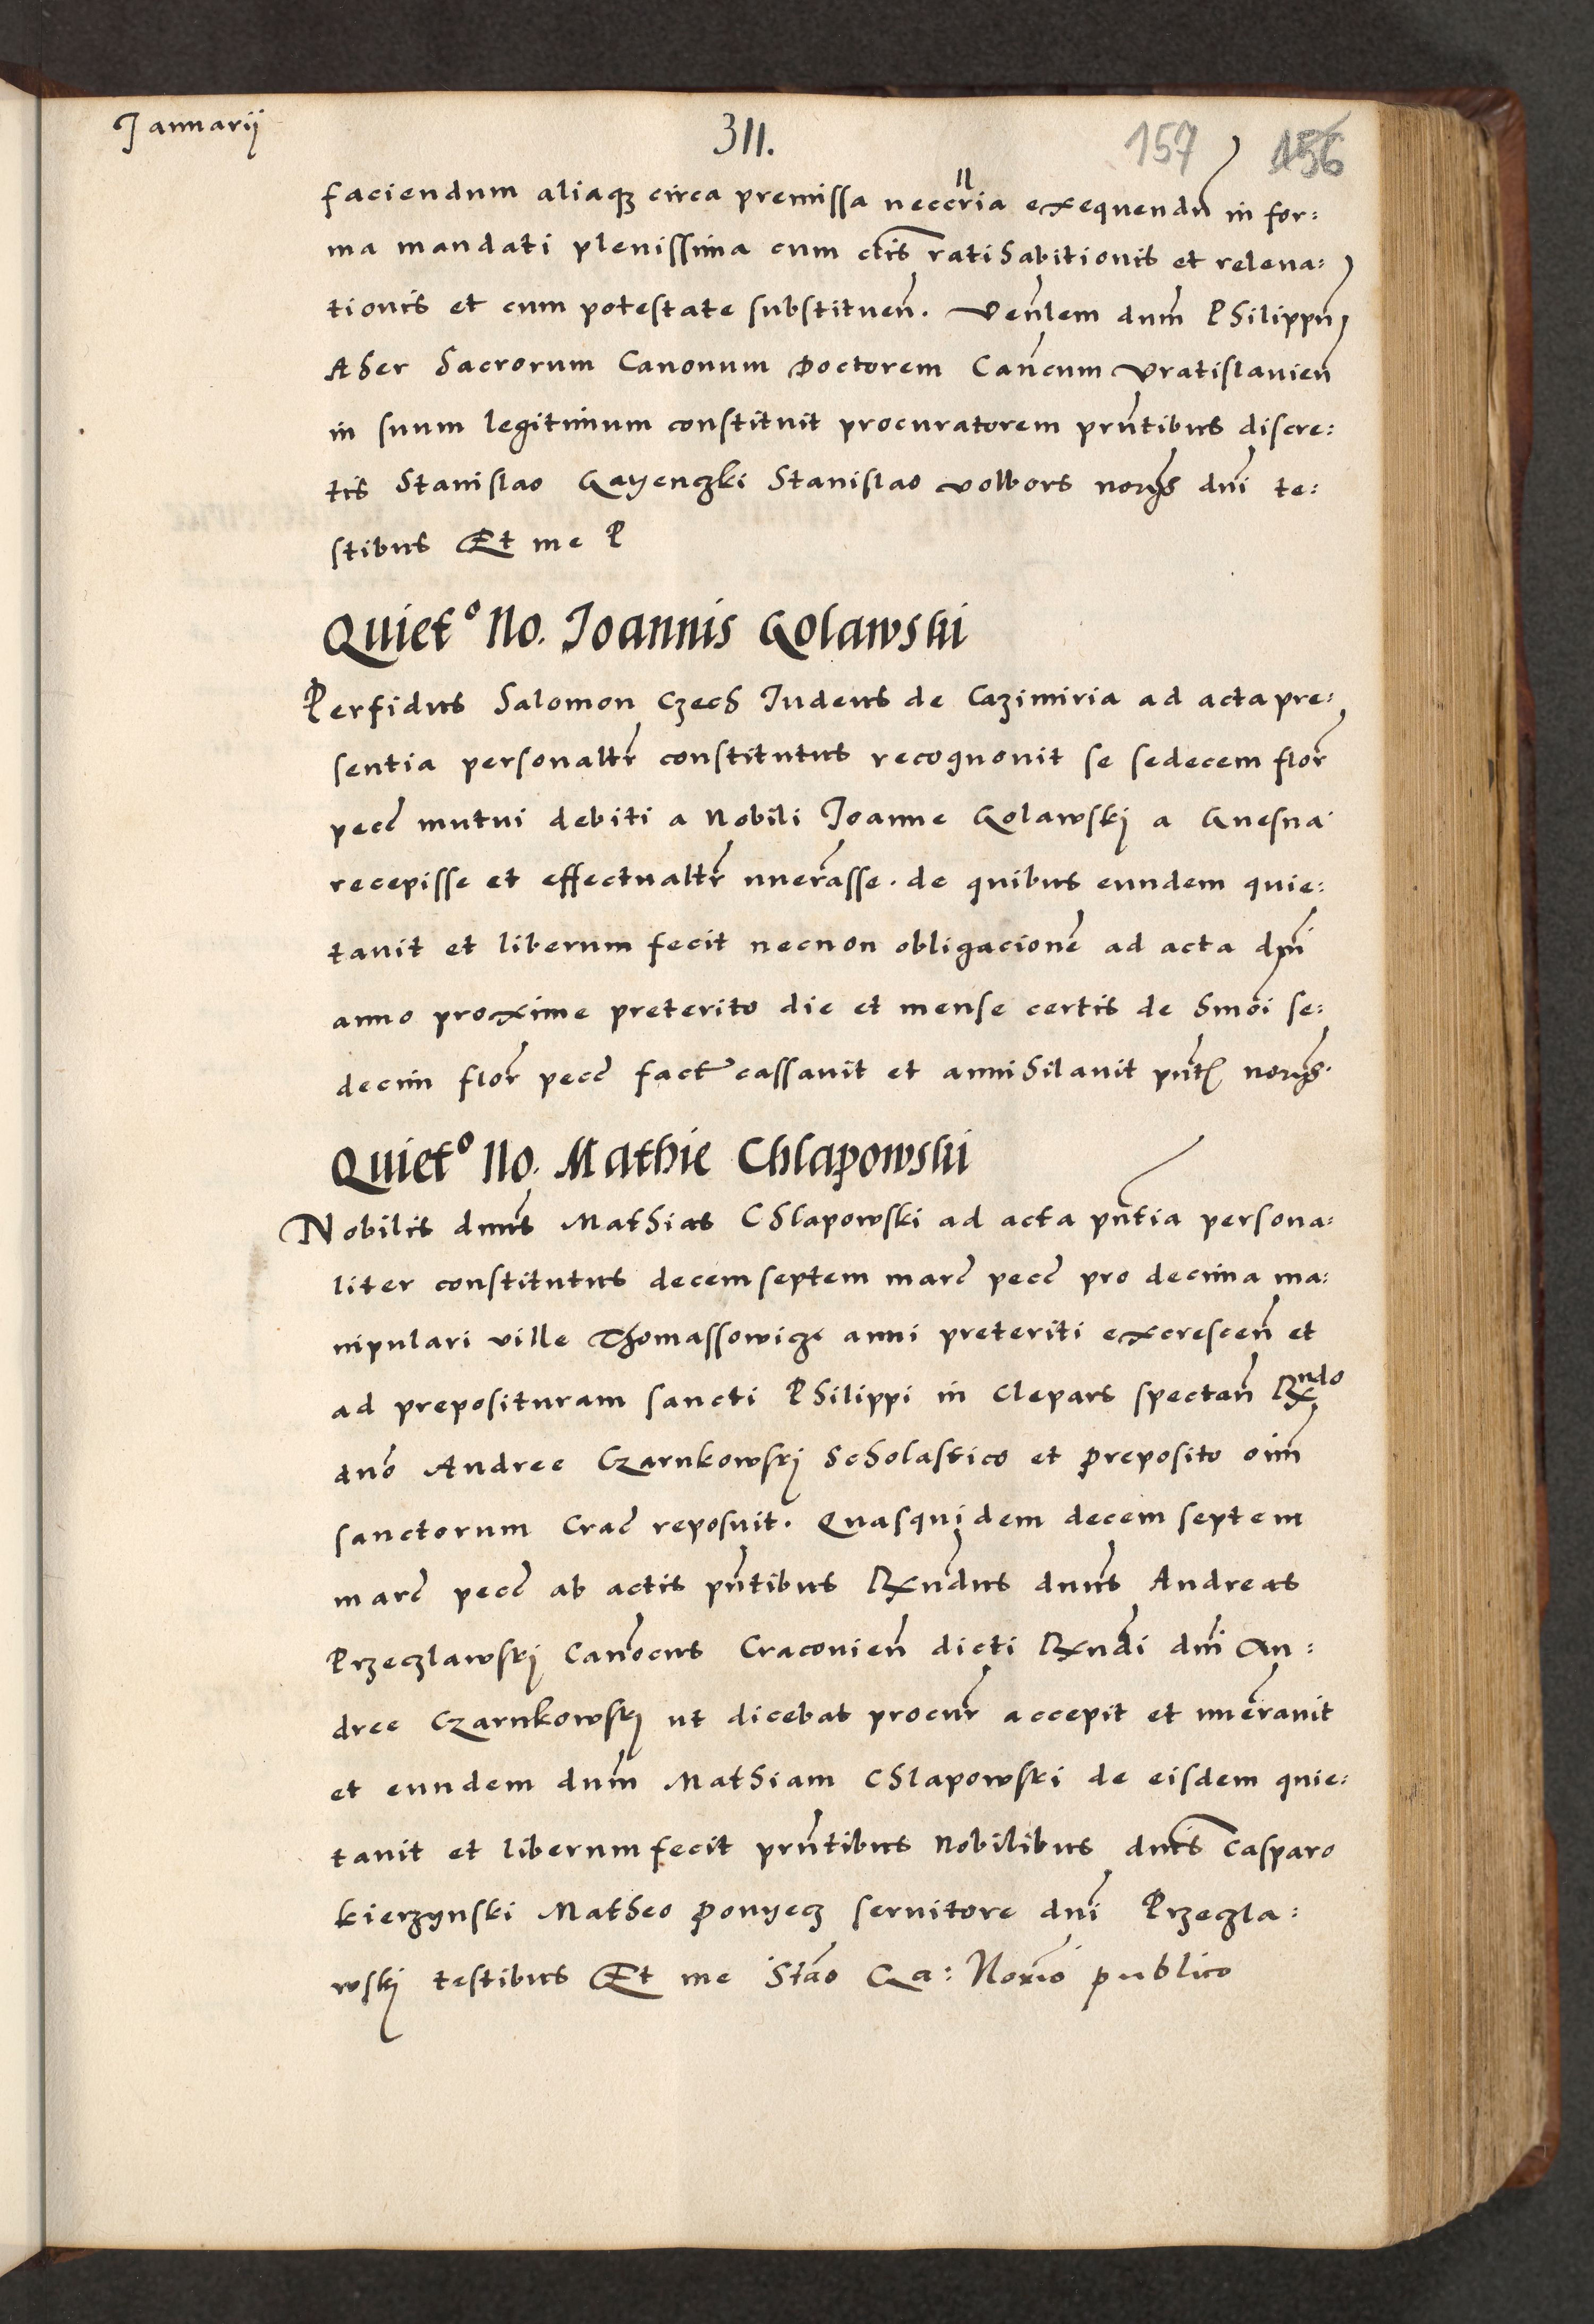 Januarij
311.
157 156
faciendum aliaqз circa premissa neccria exequendũ in for:
ma mandati plenissima cum clis ratihabitionis et releua:
tionis et cum potestate substituen̄. Ven̄lem dnm̄ Philippũ
Aher Sacrorum Canonum Doctorem Can̄cum Vratislauien̄
in suum legitimum constituit procuratorem prn̄tibus discre:
tis Stanislao Gayenczki Stanislao Wolbors norijs dn̄i te:
stibus Et me P
Quiet° No. Joannis Golawski
Perfidus Salomon Czech Iudeus de Cazimiria ad acta pre:
sentia personaltr̄ constitutus recognouit se sedecem flor̄
pecc̄ mutui debiti a Nobili Joanne Golawskj a Gnesna
recepisse et effectualtr̄ nuer̄asse. de quibus eundem quie:
tauit et liberum fecit necnon obligacionē ad acta dpn̄i
anno proxime preterito die et mense certis de hmōi se:
decim flor̄ pecc̄ fact̄ cassauit et annihilauit pn̄t norijs.
Quiet° No. Mathie Chlapowski
Nobilis dnus Mathias Chlapowski ad acta pn̄tia persona:
liter constitutus decemseptem marc̄ pecc̄ pro decima ma:
nipulari ville Thomassowicze anni preteriti excrescen̄ et
ad preposituram sancti Philippi in Clepars spectan̄ Rndo
dnō Andree Czarnkowskj Scholastico et preposito oim̄
sanctorum Crac̄ reposuit. Quasquidem decem septem
marc̄ pecc̄ ab actis pn̄tibus Rn̄dus dnus Andreas
Przeczlawskj Canōcus Craconien̄ dicti Rn̄di dn̄i An:
dree Czarnkowskj ut dicebat procur̄ accepit et nuer̄auit
et eundem dnm̄ Mathiam Chlapowski de eisdem quie:
tauit et liberum fecit prn̄tibus Nobilibus dnis Casparo
kierzynski Matheo Ponyecz seruitore dn̄i Przeczla:
wskj testibus Et me Stāo Ga: Norio publico